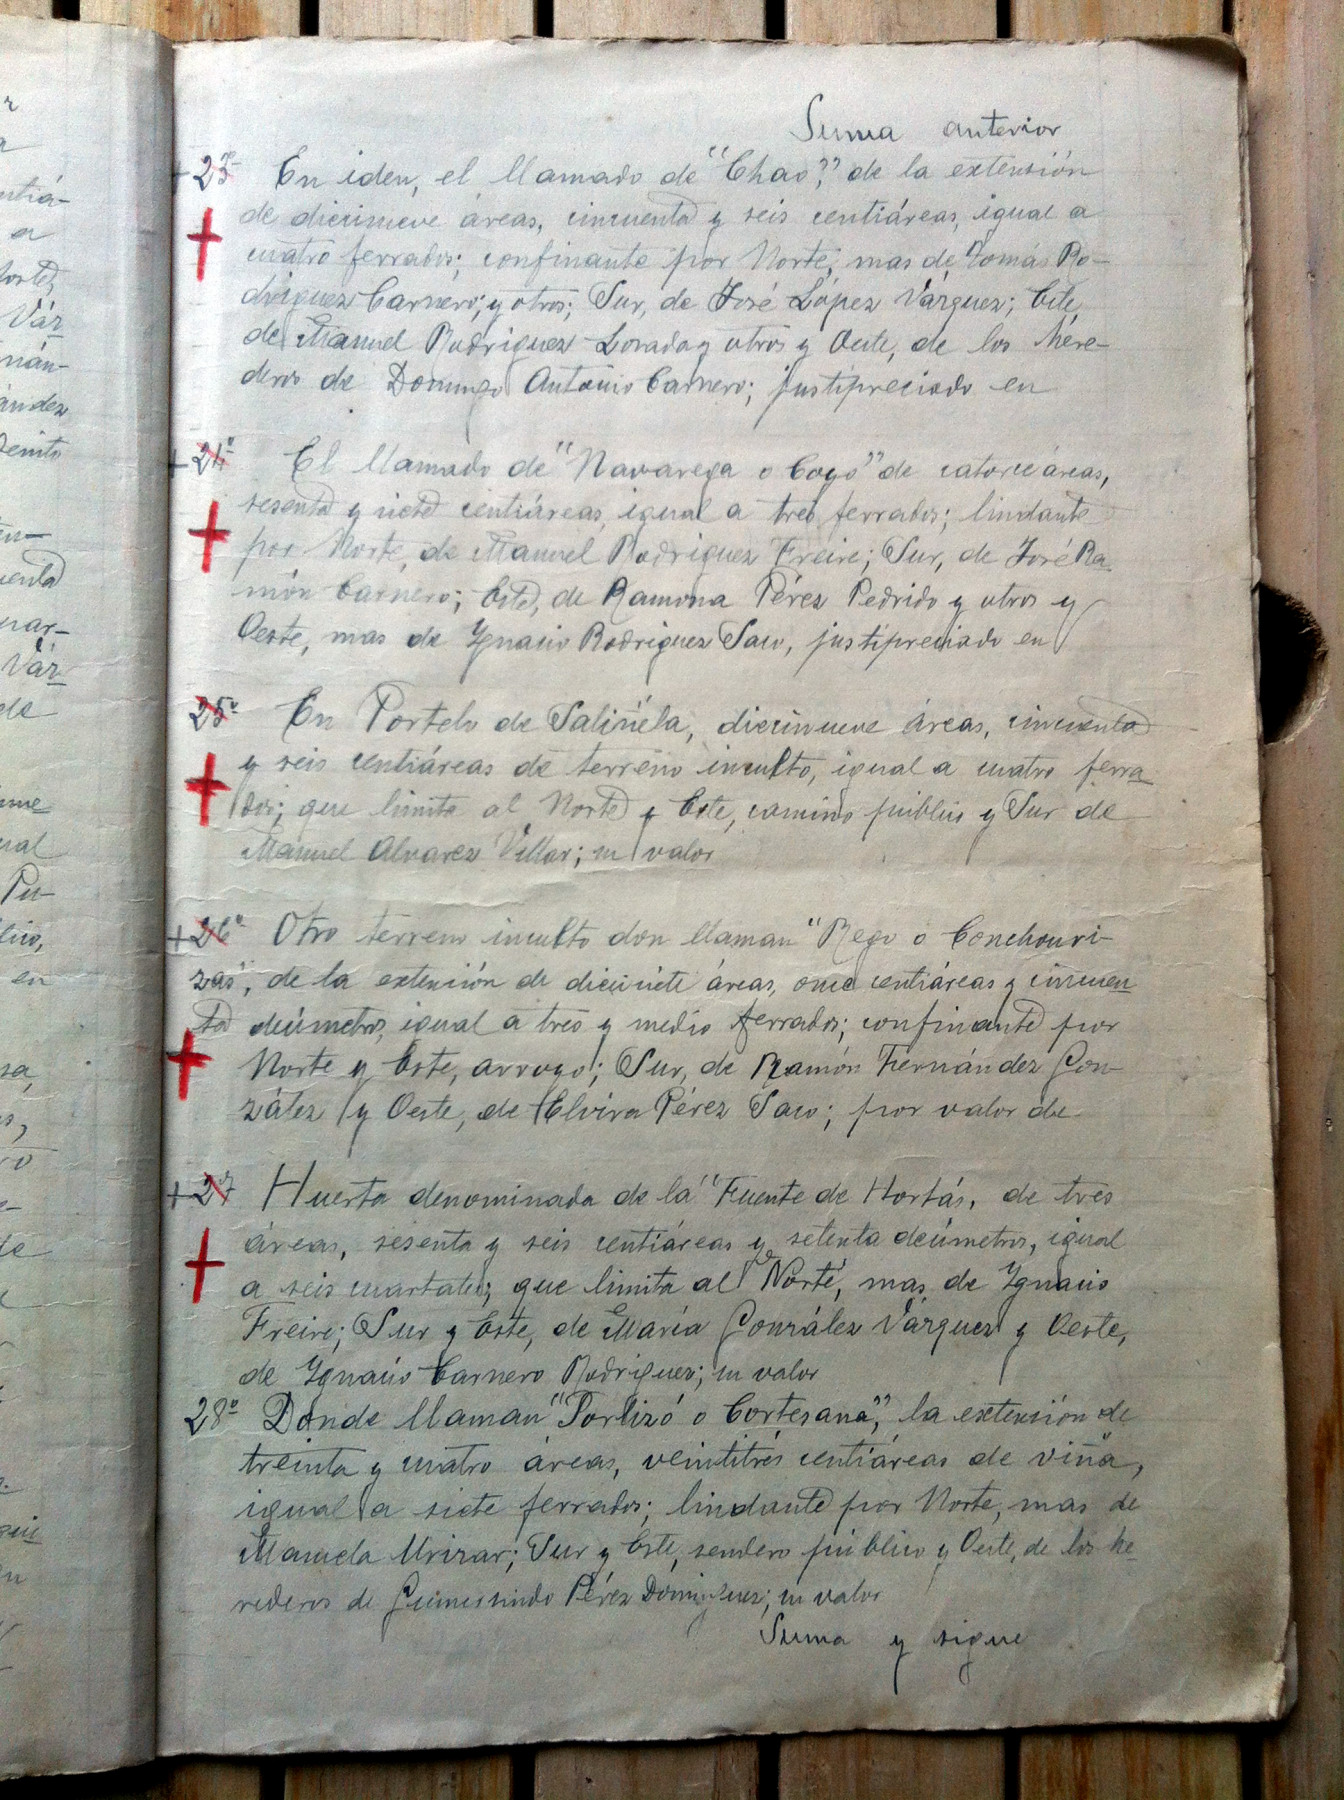 Suma anterior
+23º En iden, el llamado de "Chao", de la extensión
de diecinueve áreas, cincuenta y seis centiáreas, igual a
cuatro ferrados; confinante por Norte, mas de Tomás Ro-
driguez Carnero; y otros; Sur, de José López Vázquez; Este,
de Manuel Rodriguez Losada y otros y Oeste, de los here-
deros de Domingo Antonio Carnero; justipreciado en
+24º El llamado de "Navarega o Coyo" de catorce áreas,
sesenta y siete centiáreas, igual a tres ferrados; lindante
por Norte, de Manuel Rodriguez Freire; Sur, de José Ra
món Carnero; Este, de Ramona Pérez Pedrido y otros y
Oeste, mas de Ignacio Rodriguez Saco, justipreciado en
25º En Portelo de Saliñela, diecinueve áreas, cincuenta
y seis centiáreas de terreno inculto, igual a cuatro ferra
dos; que limita al Norte y Este, camino público y Sur de
Manuel Alvarez Villar; su valor
+26º Otro terreno inculto don llaman "Rego o Conchouri-
zas", de la extensión de diecisiete áreas, once centiáreas y cincuen
ta decímetros, igual a tres y medio ferrados; confinante por
Norte y Este, arroyo; Sur, de Ramón Fernández Gon-
zález y Oeste, de Elvira Pérez Saco; por valor de
+27 Huerta denominada de la "Fuente de Hortás, de tres
áreas, sesenta y seis centiáreas y setenta decímetros, igual
a seis cuartales; que limita al Norte, mas de Ignacio
Freire; Sur y Este, de María González Vázquez y Oeste,
de Ignacio Carnero Rodriguez; su valor
28º Donde llaman "Portizó o Cortesana", la extensión de
treinta y cuatro áreas, veintitrés centiáreas de viña,
igual a siete ferrados; lindante por Norte, mas de
Manuela Mrizar; Sur y Este, sendero público y Oeste, de los he
rederos de Gumersindo Pérez Dominguez; su valor
Suma y sigue